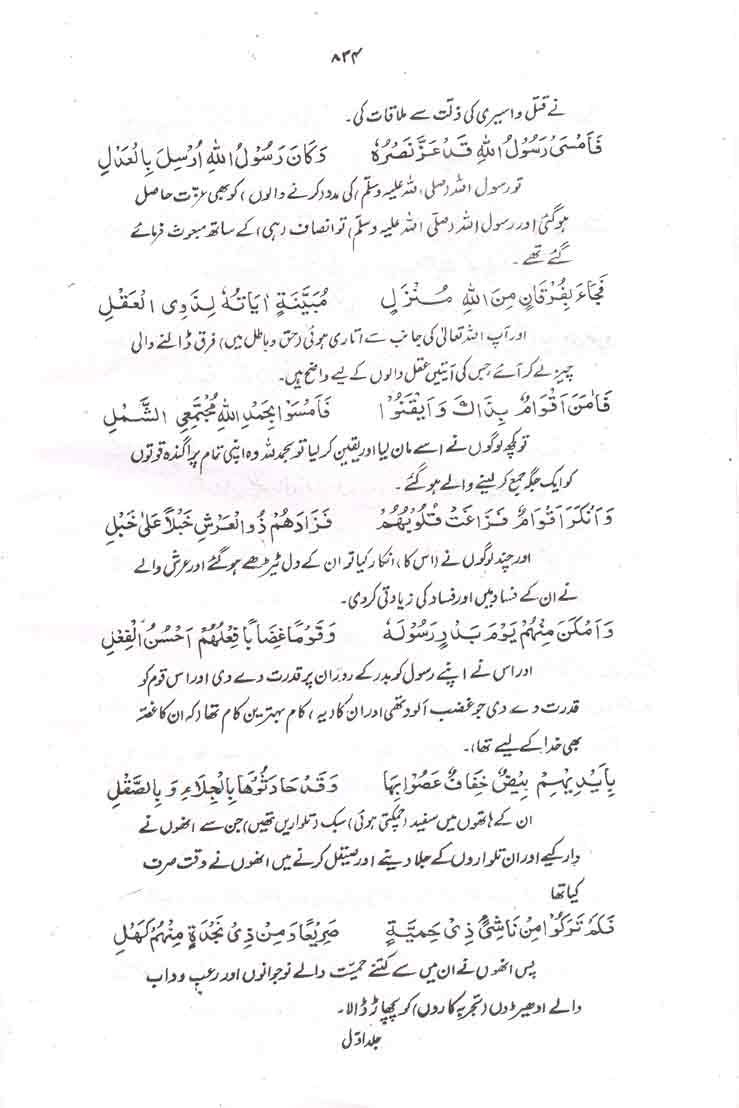 ۸۳۴
نے قتل و اسیری کی ذلت سے ملاقات کی۔
فَاَمْسَىٰ رَسُوْلُ اللهِ قَدْ عَزَّ نَصْرُهٗ وَكَانَ رَسُوْلُ اللهِ اُرْسِلَ بِالْعَدْلِ
تو رسول اللہ (صلی اللہ علیہ وسلم) کی مدد (کرنے والوں) کو بھی عزت حاصل
ہو گئی اور رسول اللہ (صلی اللہ علیہ وسلم) تو انصاف (ہی) کے ساتھ مبعوث فرمائے
گئے تھے۔
فَجَآءَ بِفُرْقَانٍ مِنَ اللهِ مُنْزَلٍ مُبَيَّنَةٍ اٰيَاتُهٗ لِذَوِى الْعَقْلِ
اور آپ اللہ تعالیٰ کی جانب سے اتاری ہوئی (حق و باطل میں) فرق ڈالنے والی
چیز لے کر آئے جس کی آیتیں عقل والوں کے لیے واضح ہیں۔
فَاٰمَنَ اَقْوَامٌ بِذَاكَ وَاَيْقَنُوْا فَاَمْسَوْا بِحَمْدِ اللهِ مُجْتَمِعِى الشَّمْلِ
تو کچھ لوگوں نے اسے مان لیا اور یقین کر لیا تو بحمد للہ وہ اپنی تمام پراگندہ قوتوں
کو ایک جگہ جمع کر لینے والے ہو گئے۔
وَاَنْكَرَ اَقْوَامٌ فَزَاغَتْ قُلُوْبُهُمْ فَزَادَهُمْ ذُو الْعَرْشِ خَبْلًا عَلٰى خَبْلِ
اور چند لوگوں نے (اس کا) انکار کیا تو ان کے دل ٹیڑھے ہو گئے اور عرش والے
نے ان کے فساد میں اور فساد کی زیادتی کر دی۔
وَاَمْكَنَ مِنْهُمْ يَوْمَ بَدْرٍ رَسُوْلَهٗ وَقَوْمًا غِضَابًا فِعْلُهُمْ اَحْسَنُ الْفِعْلِ
اور اس نے اپنے رسول کو بدر کے روز ان پر قدرت دے دی اور اس قوم کو
قدرت دے دی جو غضب آلود تھی اور ان کا (یہ) کام بہترین کام تھا (کہ ان کا غصّہ
بھی خدا کے لیے تھا)۔
بِاَيْدِيْهِمْ بِيْضٌ خِفَافٌ عَصَوْا بِهَا وَقَدْ حَادَثُوْهَا بِالْجِلَاءِ وَبِالصَّقْلِ
ان کے ہاتھوں میں سفید (چمکتی ہوئی) سبک (تلواریں تھیں) جن سے انھوں نے
وار کیے اور ان تلواروں کے جلا دینے اور صیقل کرنے میں انھوں نے وقت صرف
کیا تھا
فَكَمْ تَرَكُوْا مِنْ نَاشِئٍ ذِىْ حَمِيَّةٍ صَرِيْعًا وَمِنْ ذِىْ نَجْدَةٍ مِنْهُمْ كَهْلِ
پس انھوں نے ان میں سے کتنے حمیّت والے نوجوانوں اور رعب و داب
والے ادھیڑوں (تجربہ کاروں) کو پچھاڑ ڈالا۔
جلد اوّل